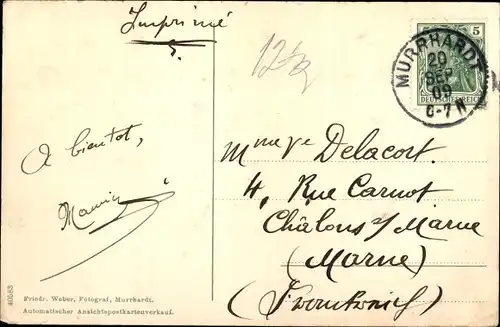 Imprimé
12½
5
MURRHARDT
20
SEP
09
6-7 N
DEUTSCHES REICH
A bientot,
Mme Ve Delacort.
4, Rue Carnot
Châlons s/ Marne
(Marne)
(Frankreich)
40583
Friedr. Weber, Fotograf, Murrhardt.
Automatischer Ansichtspostkartenverkauf.